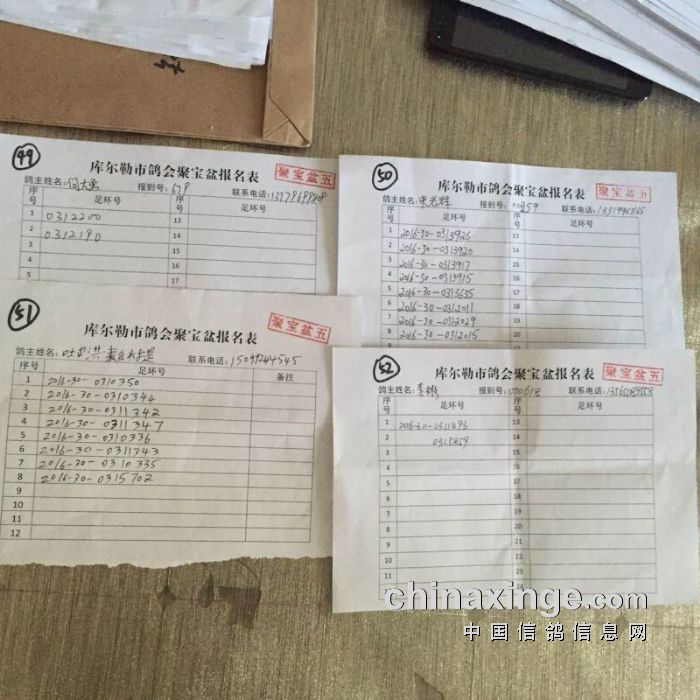 49
库尔勒市鸽会聚宝盆报名表
聚宝盆五
鸽主姓名: 报到号: 679 联系电话:
序号 足环号 序号 足环号
1 0312200 13
2 0312190 14
3 15
4 16
5 17
50
库尔勒市鸽会聚宝盆报名表
聚宝盆五
鸽主姓名: 报到号: 联系电话:
序号 足环号 序号 足环号
1 2016-30-0313926
2 2016-30-0313920 14
3 2016-30-0313917 15
4 2016-30-0313915 16
5 2016-30-0315635 17
6 2016-30-0312011 18
7 2016-30-0312029 19
8 2016-30-0312015 20
51
库尔勒市鸽会聚宝盆报名表
聚宝盆五
鸽主姓名: 联系电话: 15099244545
序号 足环号 备注
1 2016-30-0310350
2 2016-30-0310344
3 2016-30-0311342
4 2016-30-0311347
5 2016-30-0310336
6 2016-30-0311343
7 2016-30-0310335
8 2016-30-0315702
9
10
11
12
52
库尔勒市鸽会聚宝盆报名表
聚宝盆五
鸽主姓名: 李 报到号: 000618 联系电话:
序号 足环号 序号 足环号
1 2016-30-0311493 13
2 0315859 14
3 15
4 16
5 17
6 18
7 19
8 20
9 21
10 22
11 23
12 24
chinaxinge.com
中国信鸽信息网